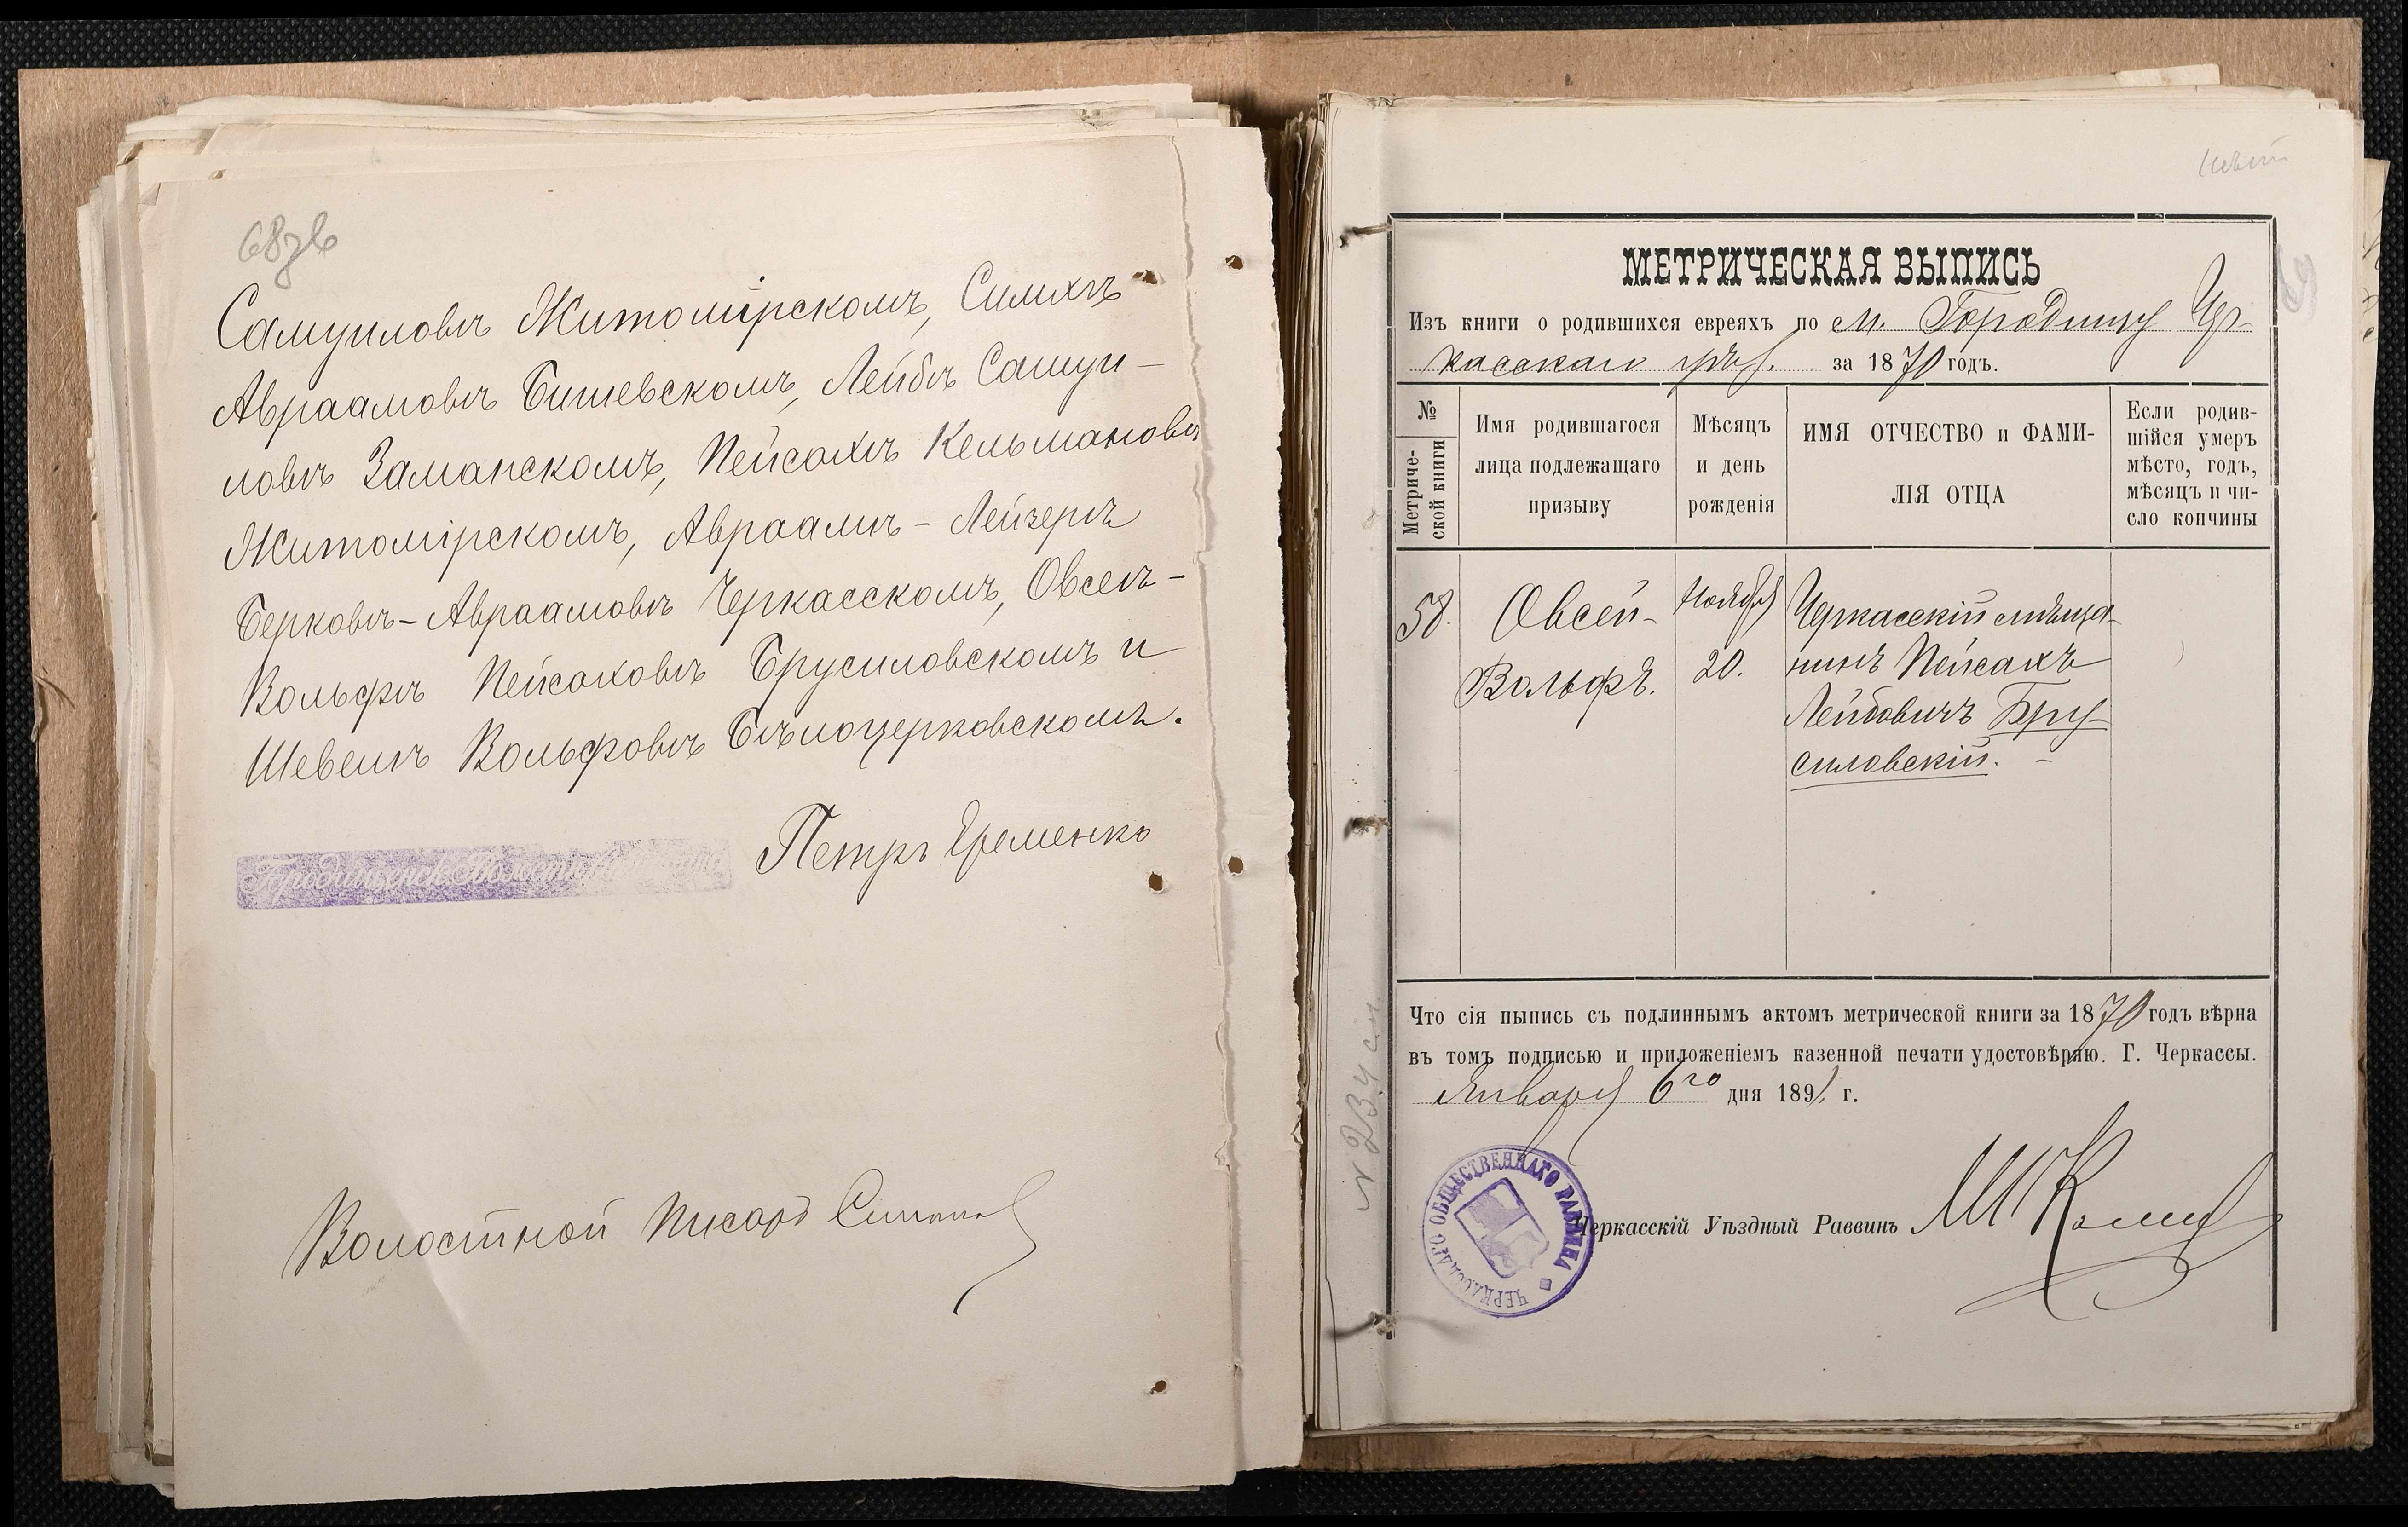 68 зв
Самуиловѣ Житомірскомъ, Симхѣ
Авраамовѣ Бишевскомъ, Лейбѣ Самуи-
ловѣ Заманскомъ, Пейсахѣ Кельмановѣ
Житомірскомъ, Авраамѣ-Лейзерѣ
Берковѣ-Авраамовѣ Черкасскомъ, Овсеѣ-
Вольфѣ Пейсаховѣ Брусиловскомъ и
Шевелѣ Вольфовѣ Бѣлоцерковскомъ.
Петръ Еременко
Волостной Писарь
МЕТРИЧЕСКАЯ ВЫПИСЬ
Изъ книги о родившихся евреяхъ по м. Городищу Чер-
касскаго уѣз. за 1870 годъ.
№ Метриче-ской книги
Имя родившагося
лица подлежащаго
призыву
Мѣсяцъ
и день
рожденія
ИМЯ ОТЧЕСТВО и ФАМИ-
ЛІЯ ОТЦА
Если родив-
шійся умеръ
мѣсто, годъ,
мѣсяцъ и чи-
сло кончины
58.
Овсей-
Вольфъ.
Ноября
20.
Черкасскій мѣща-
нинъ Пейсахъ
Лейбовичъ Бру-
силовскій.
Что сія выпись съ подлиннымъ актомъ метрической книги за 1870 годъ вѣрна
въ томъ подписью и приложеніемъ казенной печати удостовѣряю. Г. Черкассы.
Января 6го дня 1891 г.
ЧЕРКАССКАГО ОБЩЕСТВЕННАГО РАВВИНА
Черкасскій Уѣздный Раввинъ